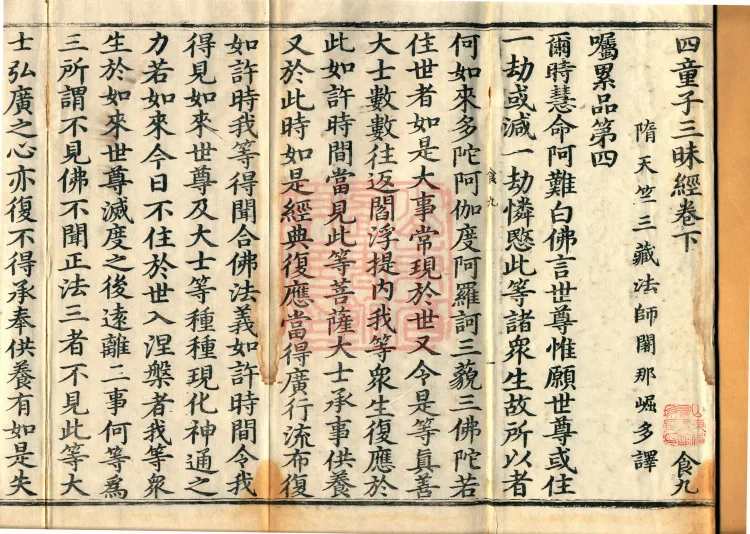 四童子三昧經卷下
食九
隋天竺三藏法師闍那崛多譯
囑累品第四
爾時慧命阿難白佛言世尊惟願世尊或住
一劫或減一劫憐愍此等諸衆生故所以者
食九
何如來多陀阿伽度阿羅訶三藐三佛陀若
住世者如是大事常現於世又令是等真善
大士數數往返閻浮提内我等衆生復應於
此如許時間當見此等菩薩大士承事供養
又於此時如是經典復應當得廣行流布復
如許時我等得聞合佛法義如許時間令我
得見如來世尊及大士等種種現化神通之
力若如來今日不住於世入涅槃者我等衆
生於如來世尊滅度之後遠離二事何等爲
三所謂不見佛不聞正法三者不見此等大
士弘廣之心亦復不得承奉供養有如是失